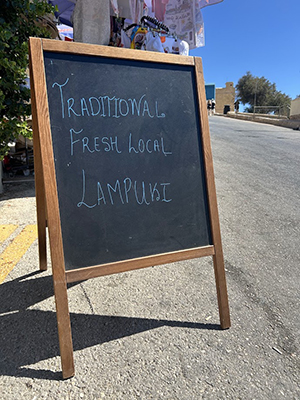 TRADITIONAL
FRESH LOCAL
LAMPUKI